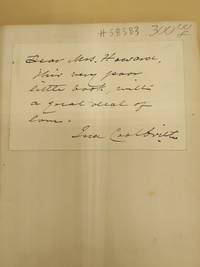 #58583 300-
Dear Mrs. Howard,
this very poor
little book, with
a great deal of
love.
Ina Coolbrith